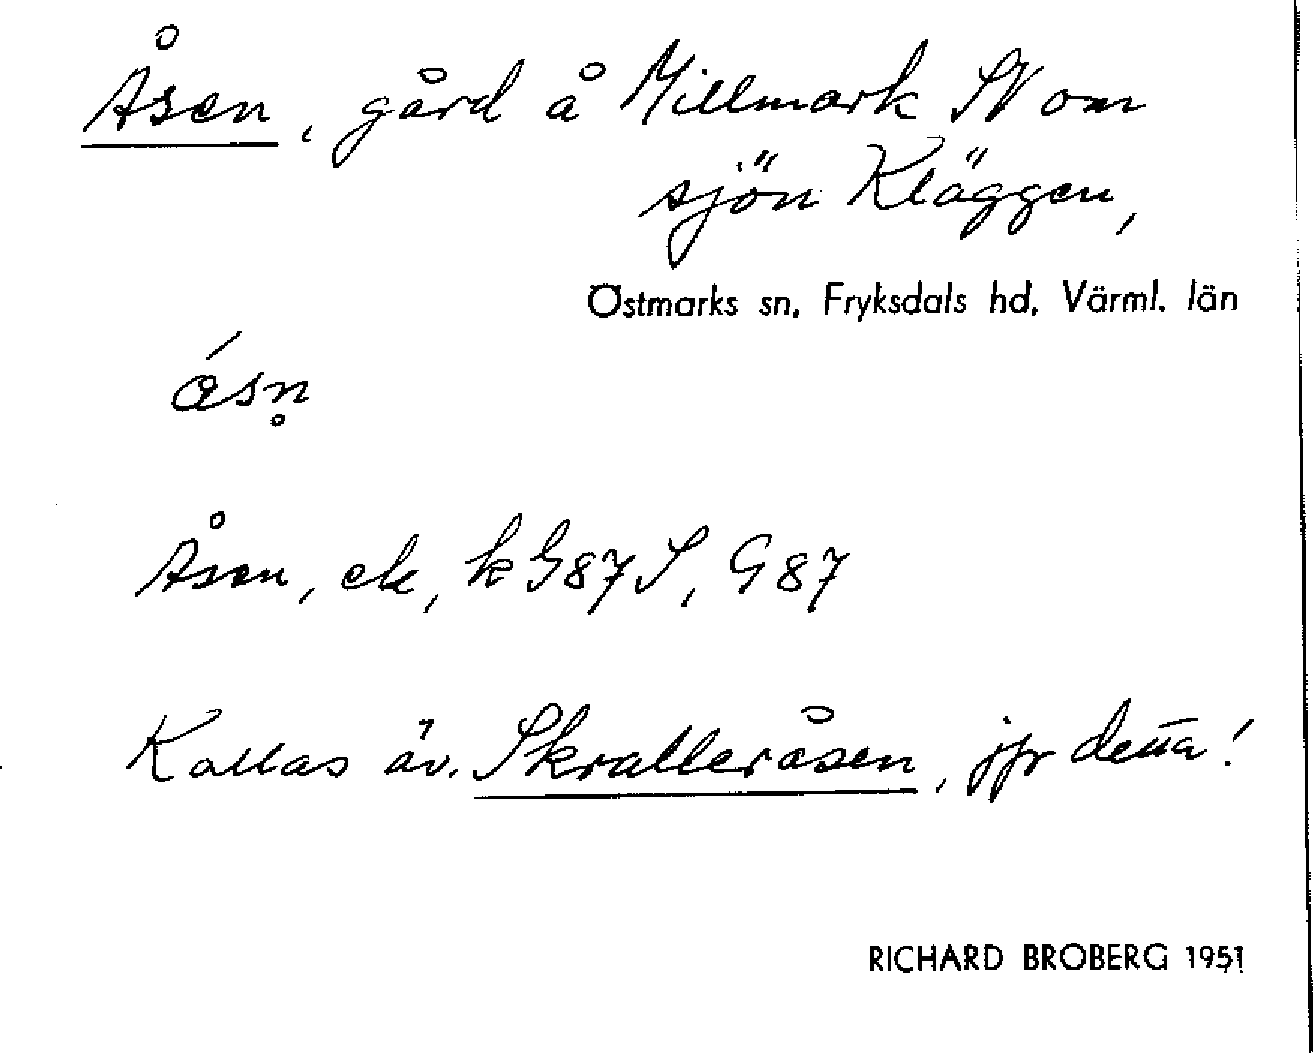 Åsen, gård å Millmark SV om
sjön Kläggen,
Östmarks sn, Fryksdals hd, Värml. län
Åsen, ek, k G87 S, G 87
Kallas äv. Skralleråsen, jfr detta!
RICHARD BROBERG 1951